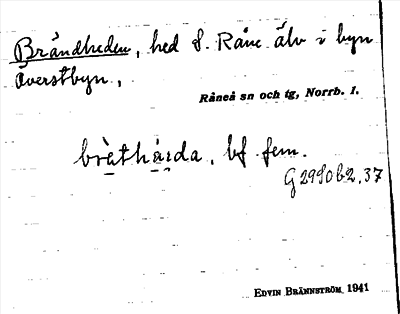 Brändheden, hed S. Råne älv i byn
Överstbyn,
Råneå sn och tg, Norrb. l.
bràthàda, bf fem.
G 2990b2, 37
EDVIN BRÄNNSTRÖM 1941